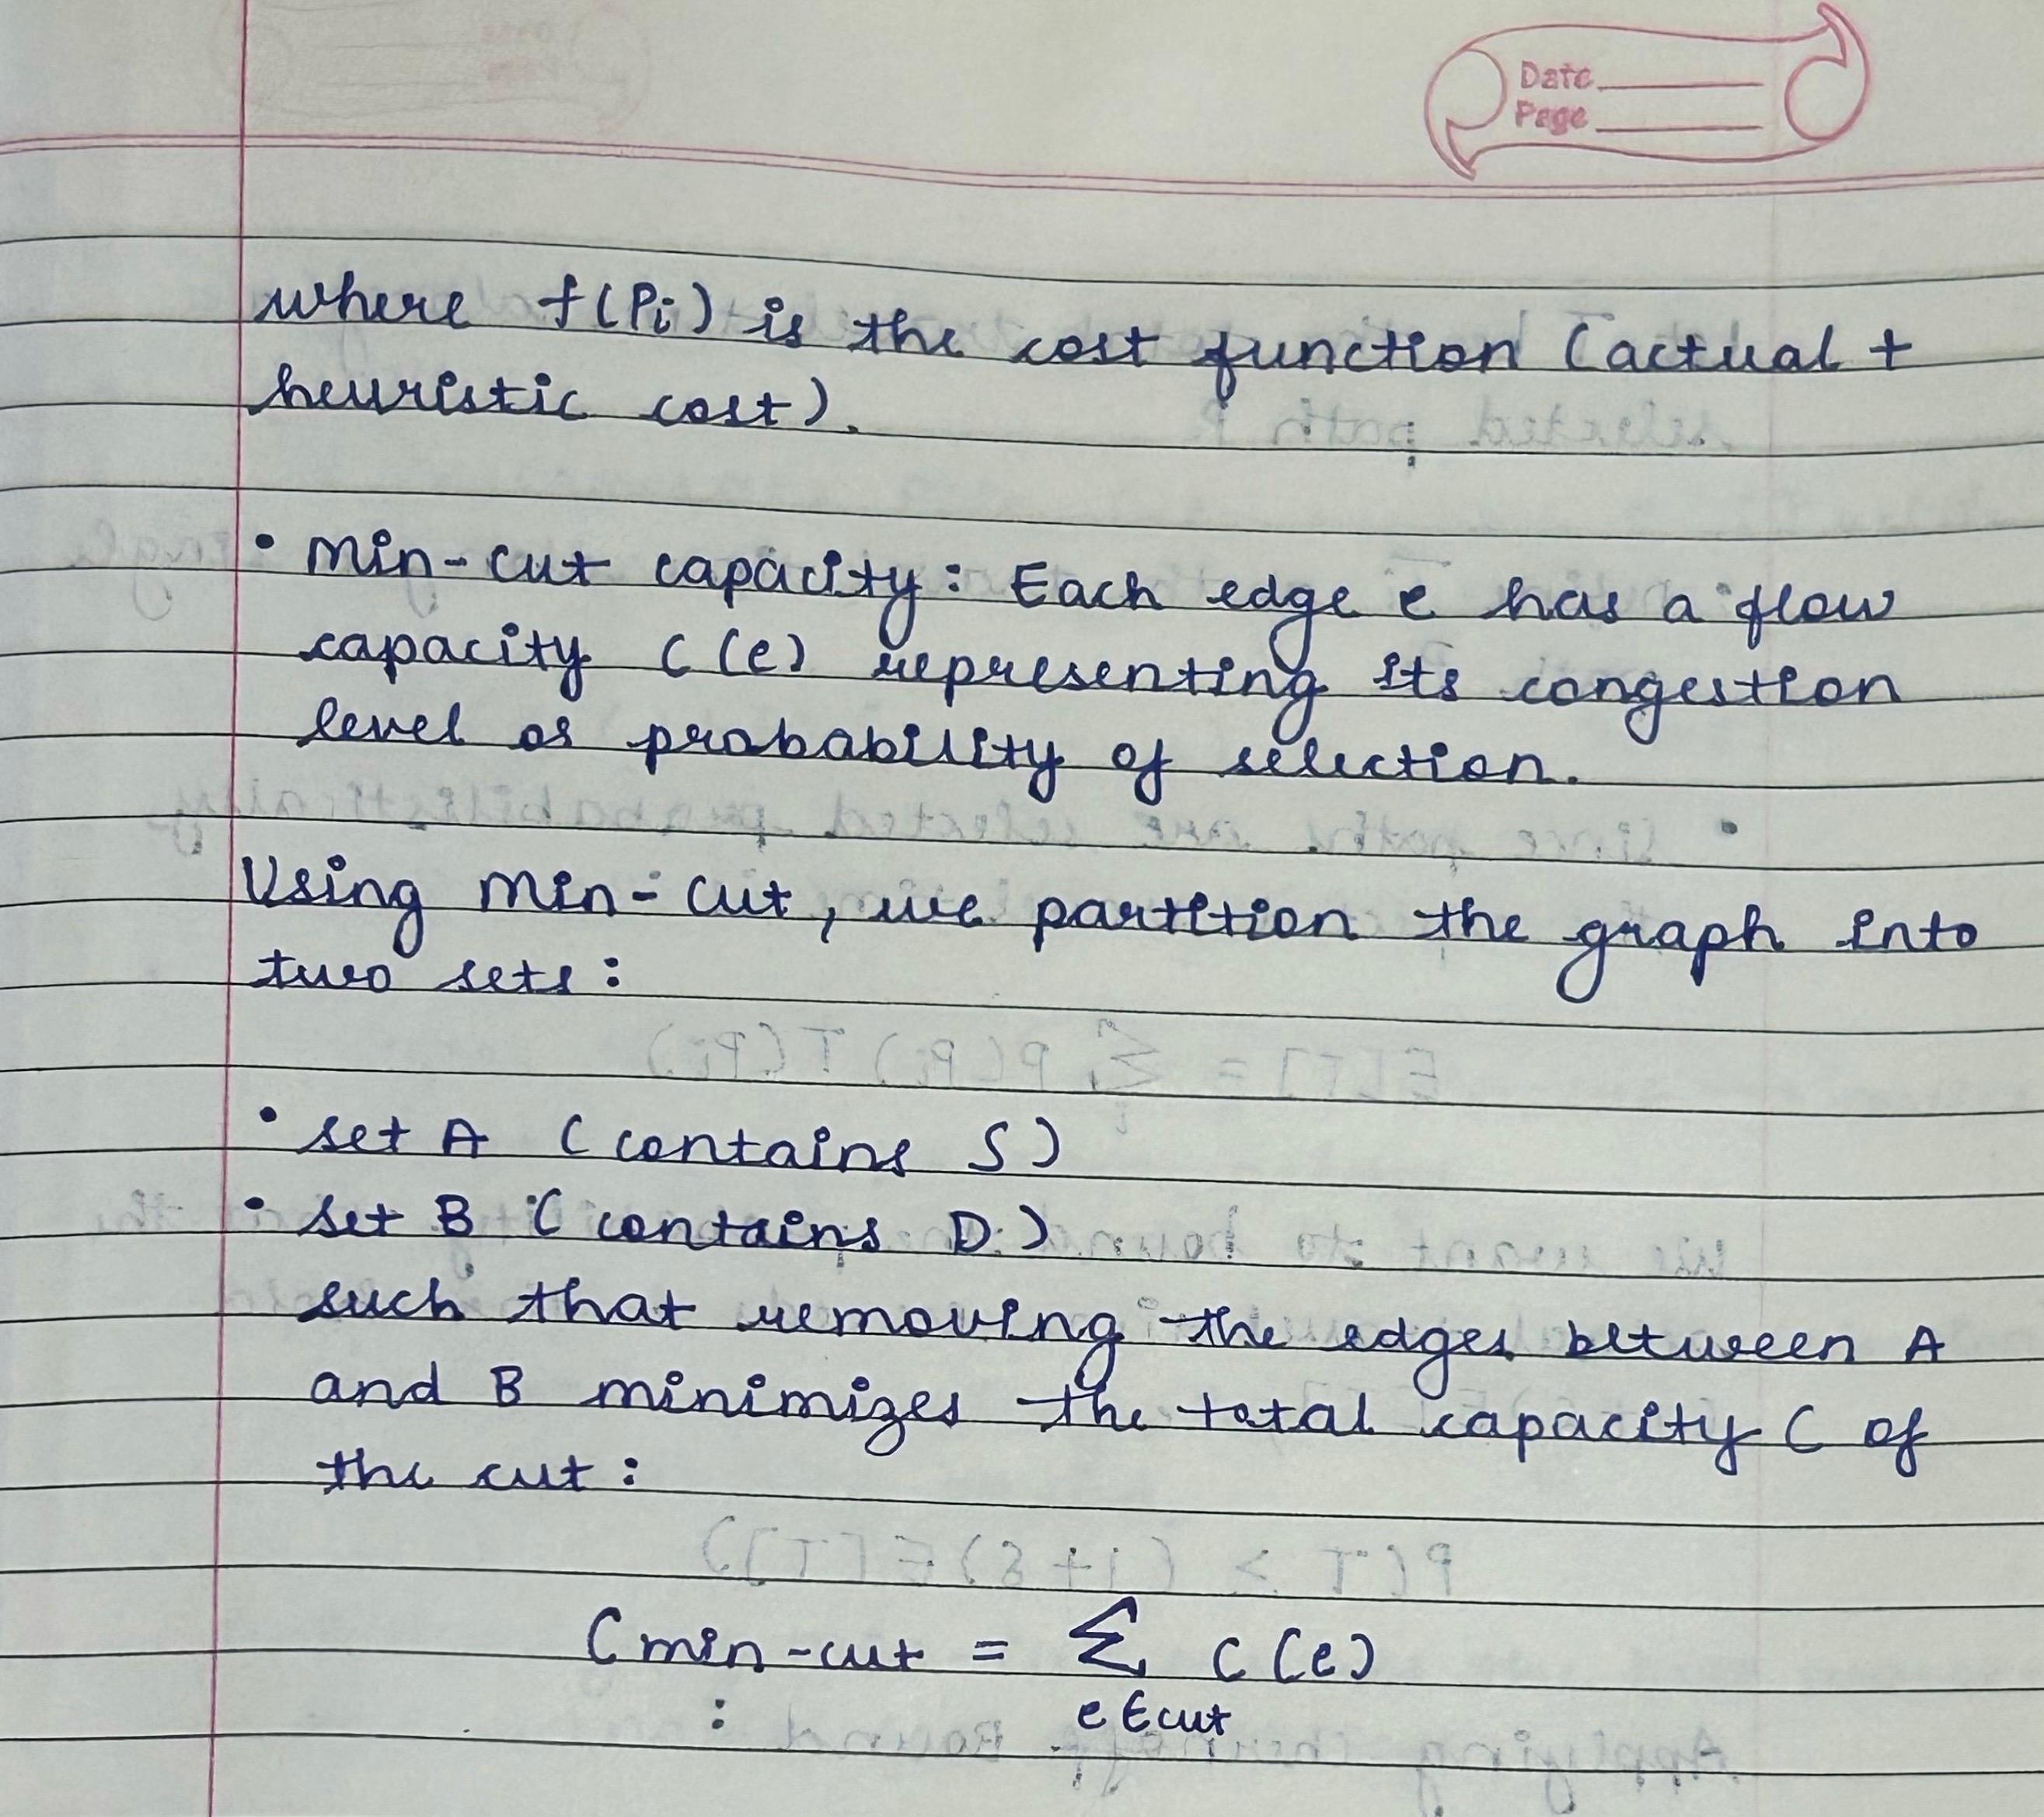 Date
Page
where f(Pi) is the cost function (actual +
heuristic cost).
• Min-cut capacity: Each edge e has a flow
capacity C(e) representing its congestion
level or probability of selection.
Using Min-cut, we partition the graph into
two sets:
• set A (contains S)
• set B (contains D)
such that removing the edges between A
and B minimizes the total capacity C of
the cut:
C min-cut = Σ C(e)
e ∈ cut